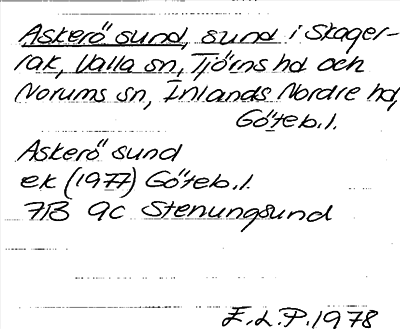 Askerö sund, sund i Skager-
rak, Valla sn, Tjörns hd och
Norums sn, Inlands Nordre hd,
Göteb.l.
Askerö sund
ek (1977) Göteb.l.
7B 9c Stenungsund
E.L.P. 1978